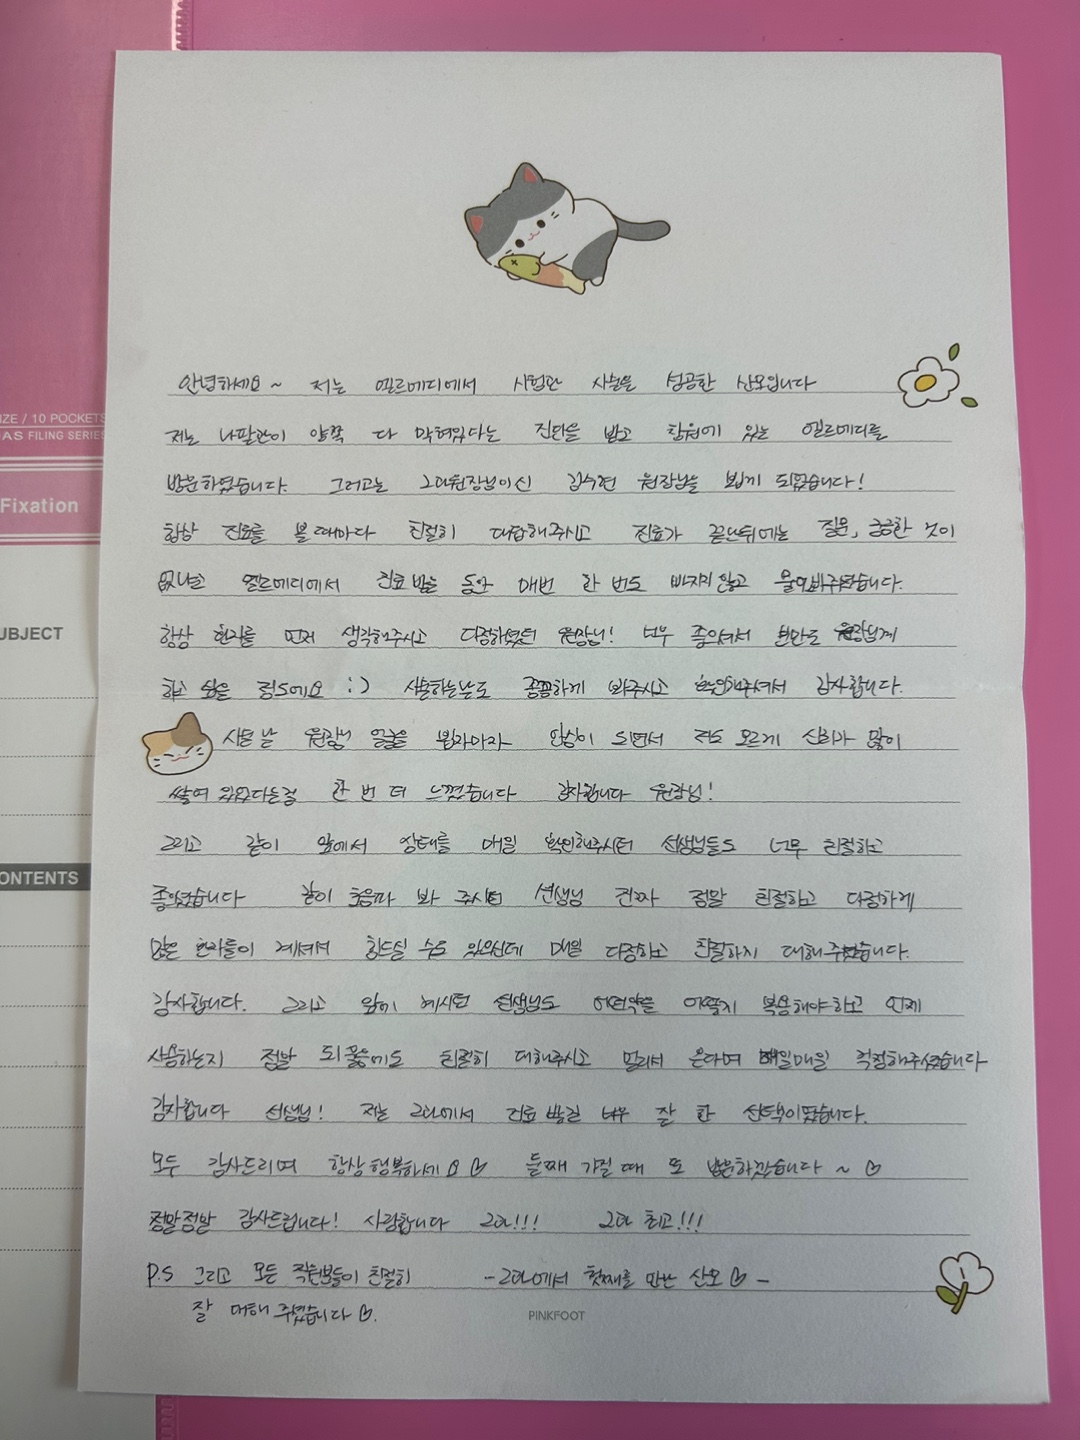 IZE / 10 POCKETS
AS FILING SERIES
Fixation
UBJECT
ONTENTS
안녕하세요~ 저는 엘르메디에서 시험관 시술을 성공한 산모입니다
저는 나팔관이 양쪽 다 막혀있다는 진단을 받고 창원에 있는 엘르메디를
방문하였습니다. 그러고는 2과원장님이신 김수현 원장님을 뵙게 되었습니다!
항상 진료를 볼 때마다 친절히 대답해주시고 진료가 끝난뒤에는 질문, 궁금한 것이
없냐고 엘르메디에서 진료 받을 동안 매번 한 번도 빠지지 않고 물어봐주셨습니다.
항상 환자를 먼저 생각해주시고 다정하셨던 원장님! 너무 좋으셔서 분만도 원장님께
하고 싶을 정도에요 :) 시술하는날도 꼼꼼하게 봐주시고 확인해주셔서 감사합니다.
시술 날 원장님 얼굴을 보자마자 안심이 되면서 저도 모르게 신뢰가 많이
쌓여 있었다는걸 한 번 더 느꼈습니다 감사합니다 원장님!
그리고 같이 앞에서 상태를 매일 확인해주시던 선생님들도 너무 친절하고
좋았었습니다 같이 초음파 봐 주시던 선생님 진짜 정말 친절하고 다정하게
많은 환자들이 계셔서 힘드실 수도 있으신데 매일 다정하고 친절하게 대해주셨습니다.
감사합니다. 그리고 앞에 계시던 선생님도 어떤약을 어떻게 복용해야하고 언제
사용하는지 정말 되물음에도 친절히 대해주시고 멀리서 온다며 매일매일 걱정해주셨습니다
감사합니다 선생님! 저는 2과에서 진료 받길 너무 잘 한 선택이였습니다.
모두 감사드리며 항상 행복하세요♡ 둘째 가질 때 또 방문하겠습니다~♡
정말정말 감사드립니다! 사랑합니다 2과!!! 2과 최고!!!
P.S 그리고 모든 직원분들이 친절히 -2과에서 첫째를 만난 산모♡-
잘 대해 주셨습니다♡.
PINKFOOT